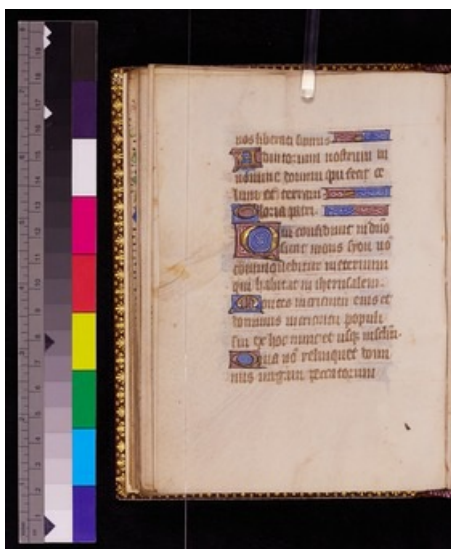 nos liberati sumus
Adiutorium nostrum in
nomine domini qui fecit ce
lum et terram
Gloria patri.
Qui confidunt in dn̄o
sicut mons syon nō
commouebitur in eternum
qui habitat in iherusalem.
Montes in circuitu eius et
dominus in circuitu populi
sui ex hoc nunc et usq̄ in sclm̄.
Quia nō relinquet domi
nus virgam peccatorum